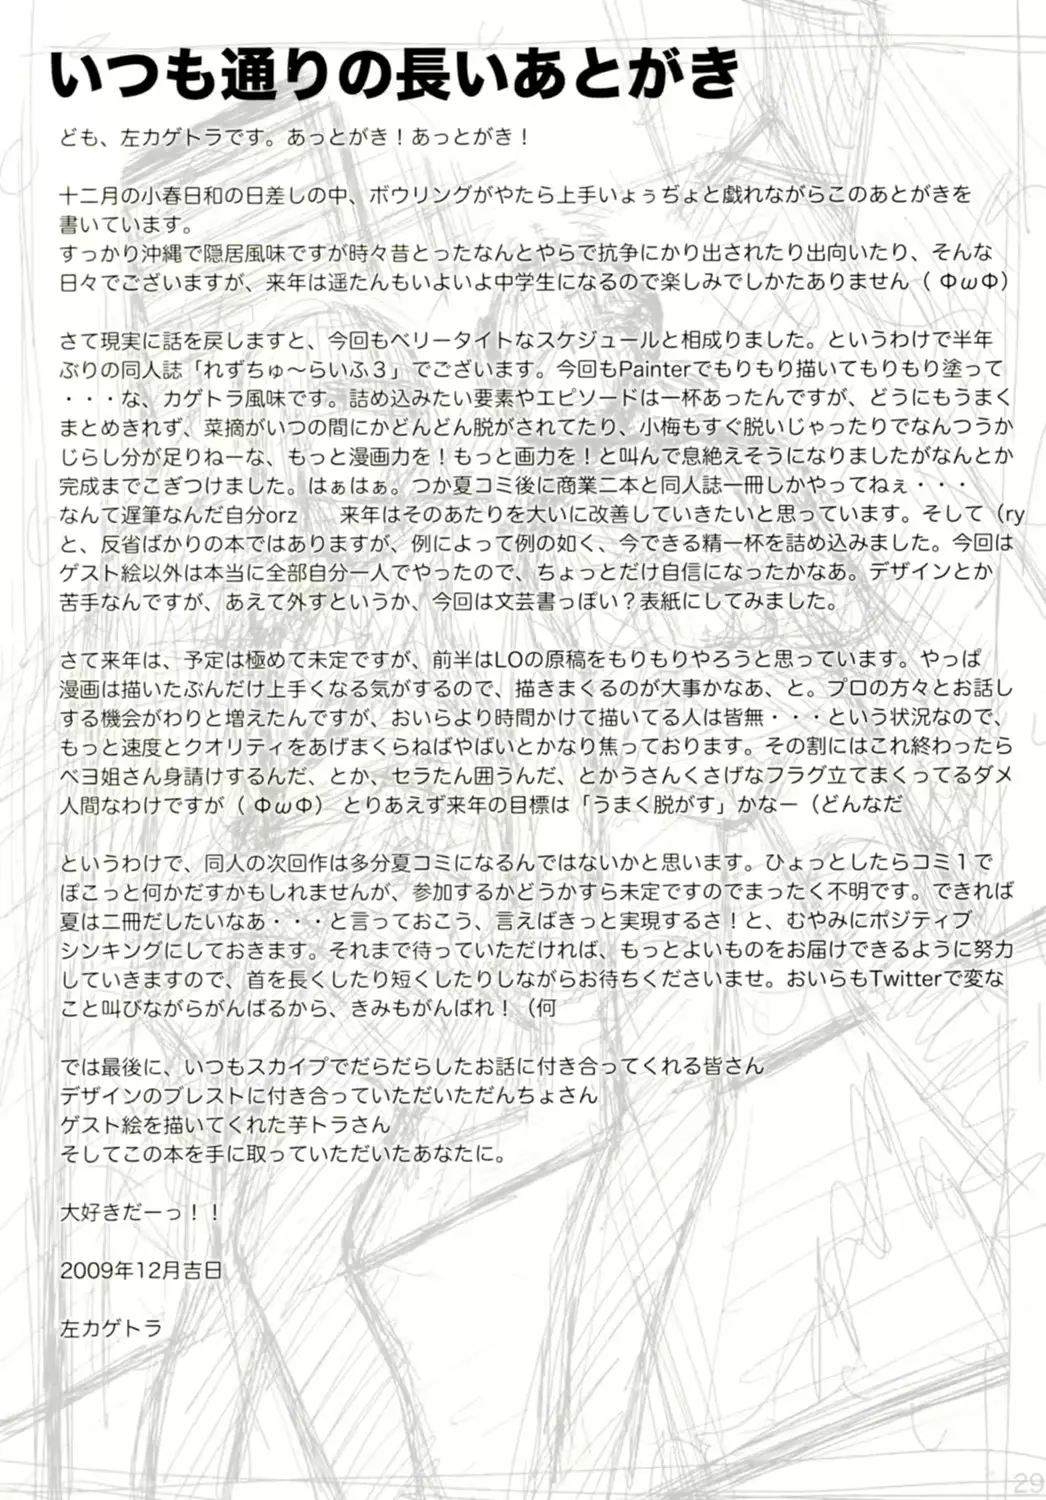 いつも通りの長いあとがき
ども、左カゲトラです。あっとがき！あっとがき！
十二月の小春日和の日差しの中、ボウリングがやたら上手いょぅぢょと戯れながらこのあとがきを
書いています。
すっかり沖縄で隠居風味ですが時々昔とったなんとやらで抗争にかり出されたり出向いたり、そんな
日々でございますが、来年は遥たんもいよいよ中学生になるので楽しみでしかたありません（ ΦωΦ）
さて現実に話を戻しますと、今回もベリータイトなスケジュールと相成りました。というわけで半年
ぶりの同人誌「れずちゅ〜らいふ３」でございます。今回もPainterでもりもり描いてもりもり塗って
・・・な、カゲトラ風味です。詰め込みたい要素やエピソードは一杯あったんですが、どうにもうまく
まとめきれず、菜摘がいつの間にかどんどん脱がされてたり、小梅もすぐ脱いじゃったりでなんつうか
じらし分が足りねーな、もっと漫画力を！もっと画力を！と叫んで息絶えそうになりましたがなんとか
完成までこぎつけました。はぁはぁ。つか夏コミ後に商業二本と同人誌一冊しかやってねぇ・・・
なんて遅筆なんだ自分orz　　来年はそのあたりを大いに改善していきたいと思っています。そして（ry
と、反省ばかりの本ではありますが、例によって例の如く、今できる精一杯を詰め込みました。今回は
ゲスト絵以外は本当に全部自分一人でやったので、ちょっとだけ自信になったかなあ。デザインとか
苦手なんですが、あえて外すというか、今回は文芸書っぽい？表紙にしてみました。
さて来年は、予定は極めて未定ですが、前半はLOの原稿をもりもりやろうと思っています。やっぱ
漫画は描いたぶんだけ上手くなる気がするので、描きまくるのが大事かなあ、と。プロの方々とお話し
する機会がわりと増えたんですが、おいらより時間かけて描いてる人は皆無・・・という状況なので、
もっと速度とクオリティをあげまくらねばやばいとかなり焦っております。その割にはこれ終わったら
ベヨ姐さん身請けするんだ、とか、セラたん囲うんだ、とかうさんくさげなフラグ立てまくってるダメ
人間なわけですが（ ΦωΦ） とりあえず来年の目標は「うまく脱がす」かなー（どんなだ
というわけで、同人の次回作は多分夏コミになるんではないかと思います。ひょっとしたらコミ１で
ぽこっと何かだすかもしれませんが、参加するかどうかすら未定ですのでまったく不明です。できれば
夏は二冊だしたいなあ・・・と言っておこう、言えばきっと実現するさ！と、むやみにポジティブ
シンキングにしておきます。それまで待っていただければ、もっとよいものをお届けできるように努力
していきますので、首を長くしたり短くしたりしながらお待ちくださいませ。おいらもTwitterで変な
こと叫びながらがんばるから、きみもがんばれ！（何
では最後に、いつもスカイプでだらだらしたお話に付き合ってくれる皆さん
デザインのブレストに付き合っていただいただんちょさん
ゲスト絵を描いてくれた芋トラさん
そしてこの本を手に取っていただいたあなたに。
大好きだーっ！！
2009年12月吉日
左カゲトラ
29